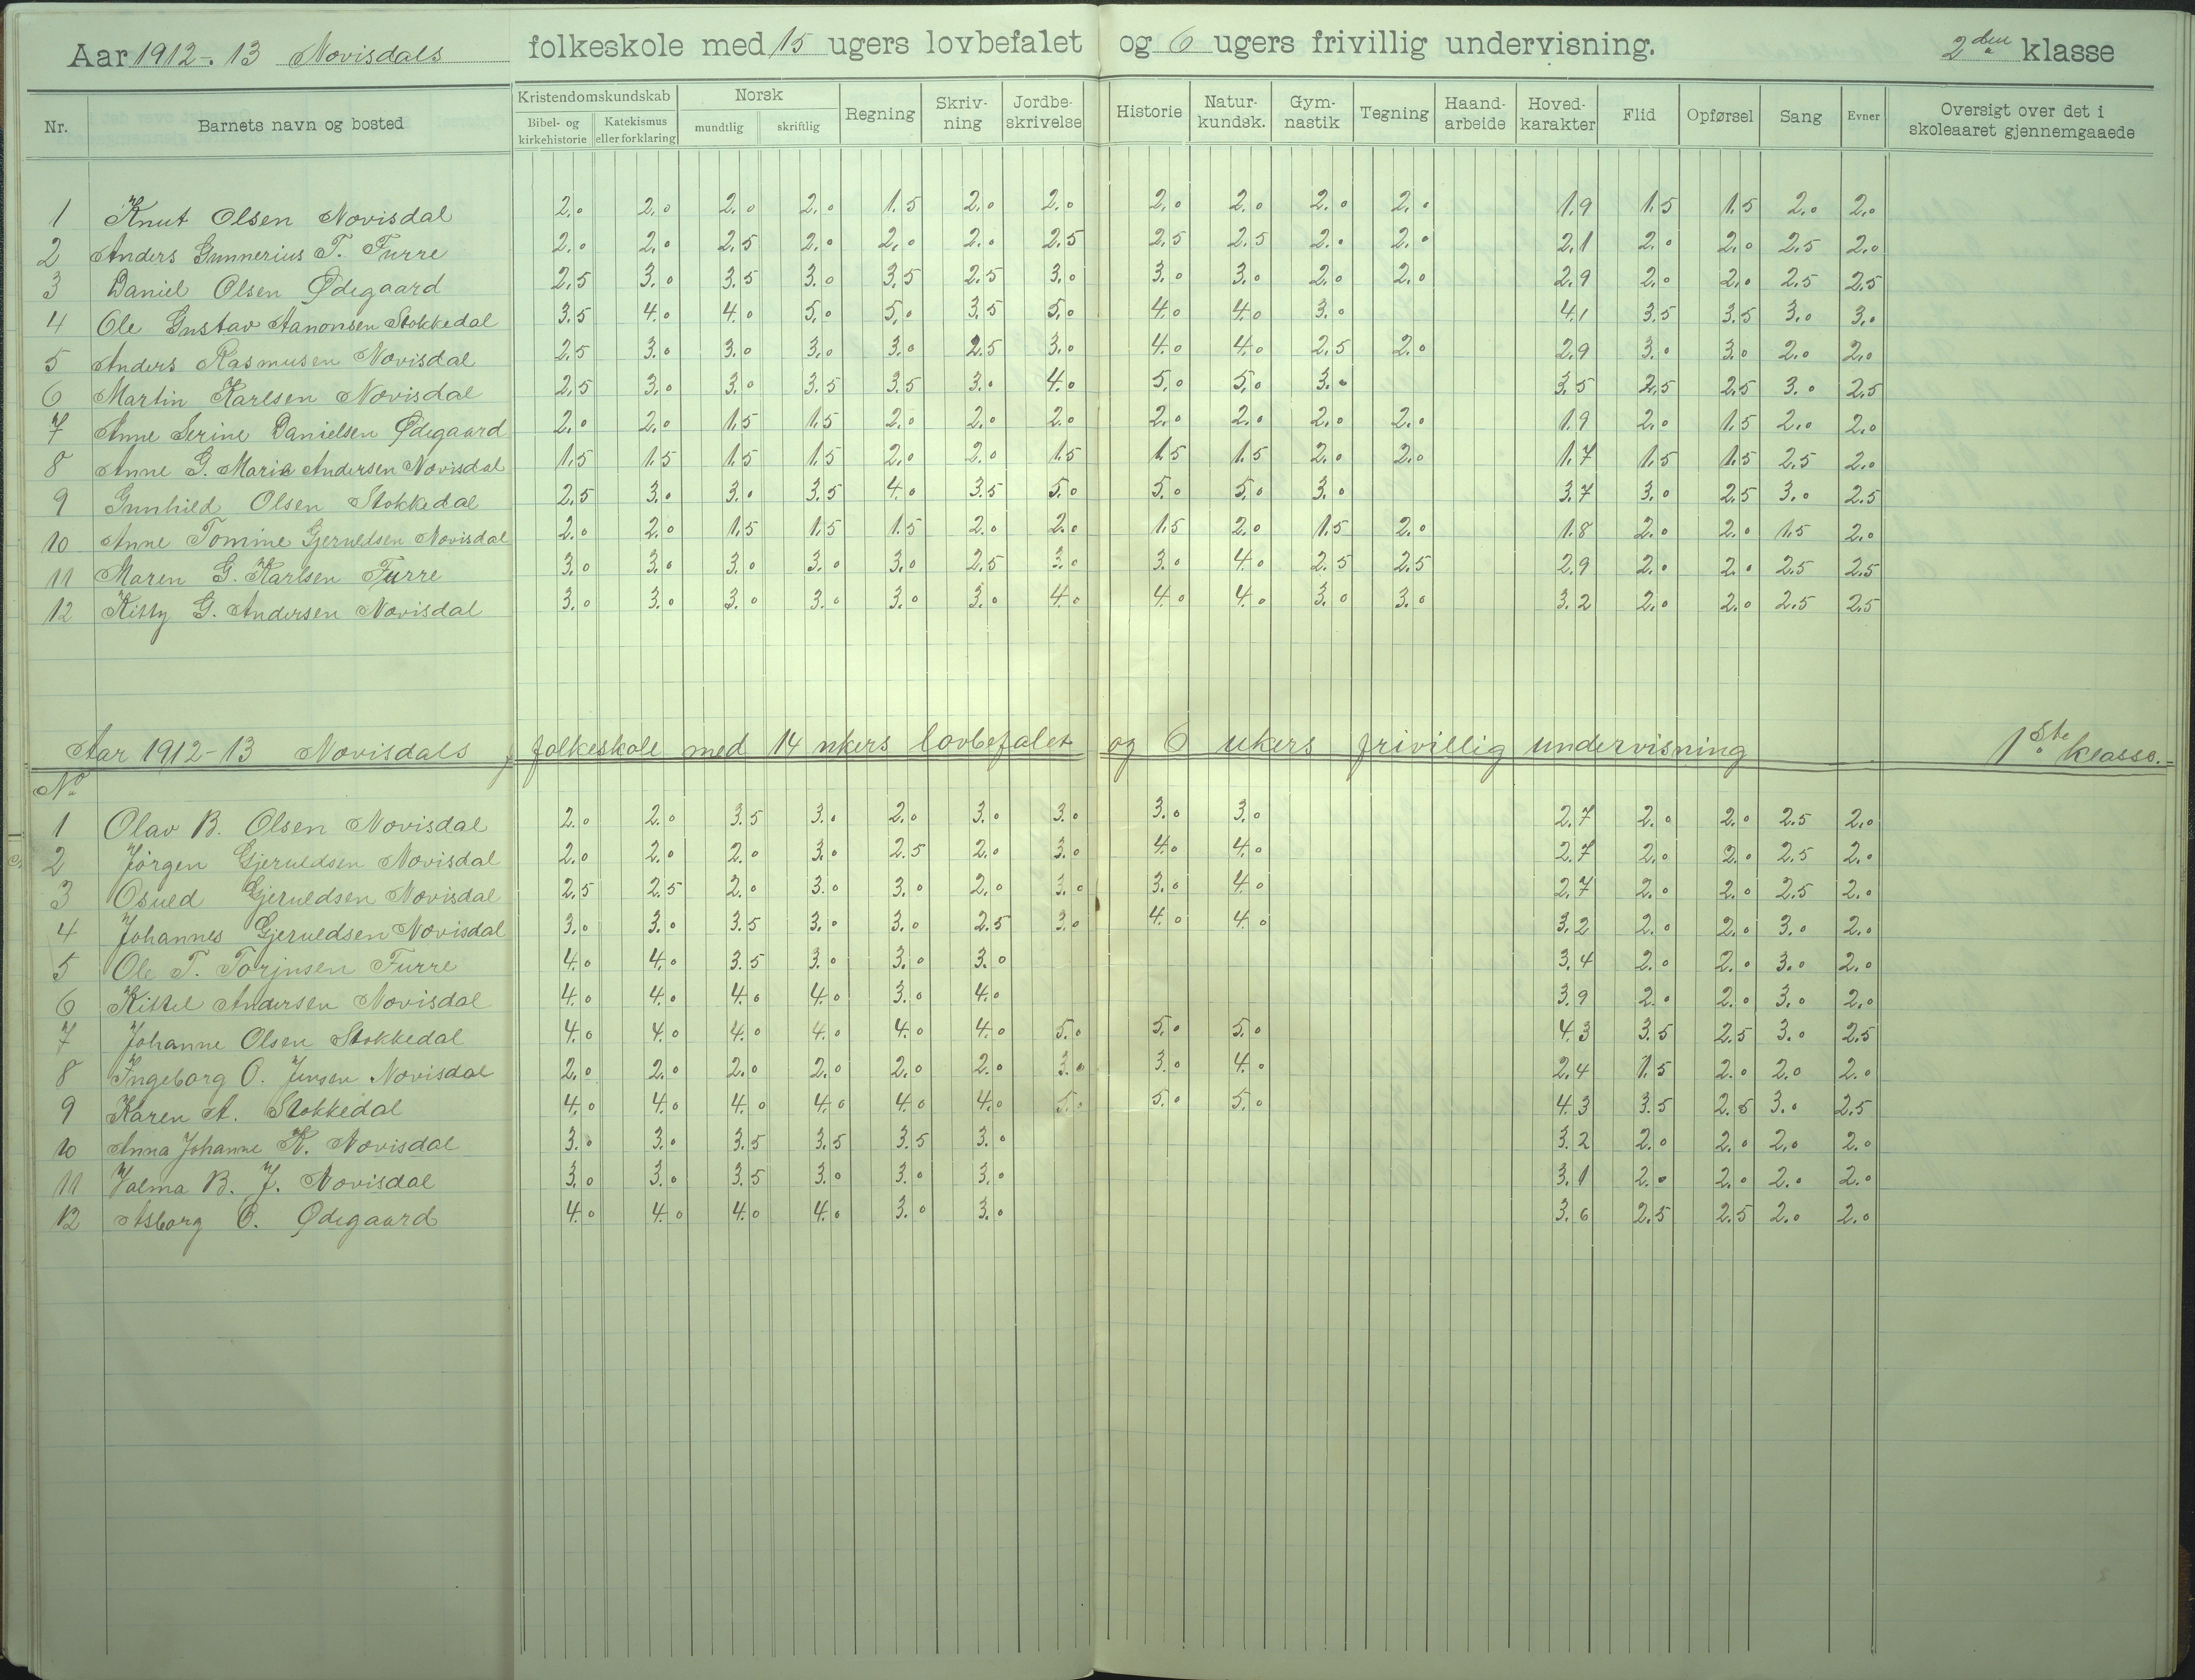 Aar 1912-13 Novisdals folkeskole med 15 ugers lovbefalet og 6 ugers frivillig undervisning. 2den klasse
Nr. Barnets navn og bosted Kristendomskundskab Bibel- og kirkehistorie Katekismus eller forklaring Norsk mundtlig skriftlig Regning Skriv-ning Jordbe-skrivelse Historie Natur-kundsk. Gym-nastik Tegning Haand-arbeide Hoved-karakter Flid Opførsel Sang Evner Oversigt over det i skoleaaret gjennemgaaede
1 Knut Olsen Novisdal 2.0 2.0 2.0 2.0 1.5 2.0 2.0 2.0 2.0 2.0 2.0 1.9 1.5 1.5 2.0 2.0
2 Anders Gunnerius T. Furre 2.0 2.0 2.5 2.0 2.0 2.0 2.5 2.5 2.5 2.0 2.0 2.1 2.0 2.0 2.5 2.0
3 Daniel Olsen Ødegaard 2.5 3.0 3.5 3.0 3.5 2.5 3.0 3.0 3.0 2.0 2.0 2.9 2.0 2.0 2.5 2.5
4 Ole Gustav Aanonsen Stokkedal 3.5 4.0 4.0 5.0 5.0 3.5 5.0 4.0 4.0 3.0 4.1 3.5 3.5 3.0 3.0
5 Anders Rasmusen Novisdal 2.5 3.0 3.0 3.0 3.0 2.5 3.0 4.0 4.0 2.5 2.0 2.9 3.0 3.0 2.0 2.0
6 Martin Karlsen Novisdal 2.5 3.0 3.0 3.5 3.5 3.0 4.0 5.0 5.0 3.0 3.5 2.5 2.5 3.0 2.5
7 Anne Serine Danielsen Ødegaard 2.0 2.0 1.5 1.5 2.0 2.0 2.0 2.0 2.0 2.0 2.0 1.9 2.0 1.5 2.0 2.0
8 Anne G. Maria Andersen Novisdal 1.5 1.5 1.5 1.5 2.0 2.0 1.5 1.5 1.5 2.0 2.0 1.7 1.5 1.5 2.5 2.0
9 Gunhild Olsen Stokkedal 2.5 3.0 3.0 3.5 4.0 3.5 5.0 5.0 5.0 3.0 3.7 3.0 2.5 3.0 2.5
10 Anne Tomine Gjeruldsen Novisdal 2.0 2.0 1.5 1.5 1.5 2.0 2.0 1.5 2.0 1.5 2.0 1.8 2.0 2.0 1.5 2.0
11 Maren G. Karlsen Furre 3.0 3.0 3.0 3.0 3.0 2.5 3.0 3.0 4.0 2.5 2.5 2.9 2.0 2.0 2.5 2.5
12 Kitty G. Andersen Novisdal 3.0 3.0 3.0 3.0 3.0 3.0 4.0 4.0 4.0 3.0 3.0 3.2 2.0 2.0 2.5 2.5
Aar 1912-13 Novisdals folkeskole med 14 ukers lovbefalet og 6 ukers frivillig undervisning 1ste klasse.
No
1 Olav B. Olsen Novisdal 2.0 2.0 3.5 3.0 2.0 3.0 3.0 3.0 3.0 2.7 2.0 2.0 2.5 2.0
2 Jörgen Gjeruldsen Novisdal 2.0 2.0 2.0 3.0 2.5 2.0 3.0 4.0 4.0 2.7 2.0 2.0 2.5 2.0
3 Osuld Gjeruldsen Novisdal 2.5 2.5 2.0 3.0 3.0 2.0 3.0 3.0 4.0 2.7 2.0 2.0 2.5 2.0
4 Johannes Gjeruldsen Novisdal 3.0 3.0 3.5 3.0 3.0 2.5 3.0 4.0 4.0 3.2 2.0 2.0 3.0 2.0
5 Ole T. Torjusen Furre 4.0 4.0 3.5 3.0 3.0 3.0 3.4 2.0 2.0 3.0 2.0
6 Kittel Andersen Novisdal 4.0 4.0 4.0 4.0 3.0 4.0 3.9 2.0 2.0 3.0 2.0
7 Johanne Olsen Stokkedal 4.0 4.0 4.0 4.0 4.0 4.0 5.0 5.0 5.0 4.3 3.5 2.5 3.0 2.5
8 Ingeborg O. Jensen Novisdal 2.0 2.0 2.0 2.0 2.0 2.0 3.0 3.0 4.0 2.4 1.5 2.0 2.0 2.0
9 Karen A. Stokkedal 4.0 4.0 4.0 4.0 4.0 4.0 5.0 5.0 5.0 4.3 3.5 2.5 3.0 2.5
10 Anna Johanne K. Novisdal 3.0 3.0 3.5 3.5 3.5 3.0 3.2 2.0 2.0 2.0 2.0
11 Valma B. J. Novisdal 3.0 3.0 3.5 3.0 3.0 3.0 3.1 2.0 2.0 2.0 2.0
12 Asborg O. Ødegaard 4.0 4.0 4.0 4.0 3.0 3.0 3.6 2.5 2.5 2.0 2.0